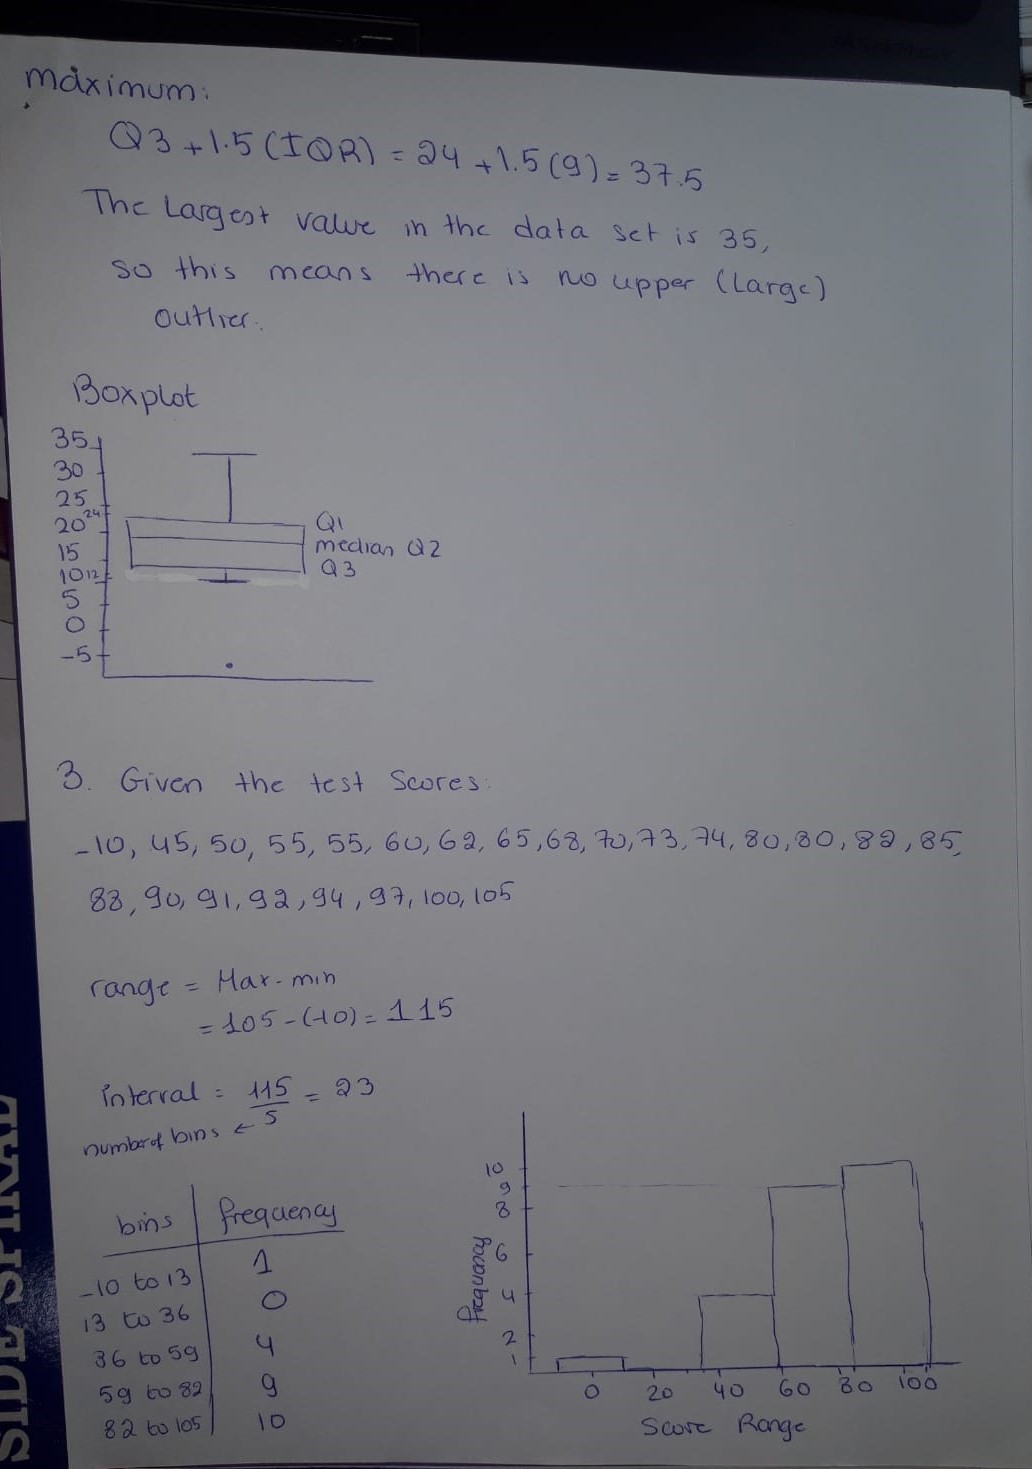 maximum:
Q3 + 1.5 (IQR) = 24 + 1.5 (9) = 37.5
The Largest value in the data set is 35,
so this means there is no upper (Large)
outlier.
Boxplot
35
30
25
24
20
15
10 12
5
0
-5
Q1
median Q2
Q3
3. Given the test Scores:
-10, 45, 50, 55, 55, 60, 62, 65, 68, 70, 73, 74, 80, 80, 82, 85,
88, 90, 91, 92, 94, 97, 100, 105
range = Max - min
= 105 - (-10) = 115
interval = 115/5 = 23
number of bins ←
bins frequency
-10 to 13 1
13 to 36 0
36 to 59 4
59 to 82 9
82 to 105 10
10
9
8
6
4
2
1
frequency
0 20 40 60 80 100
Score Range
SIDE SPIRAL